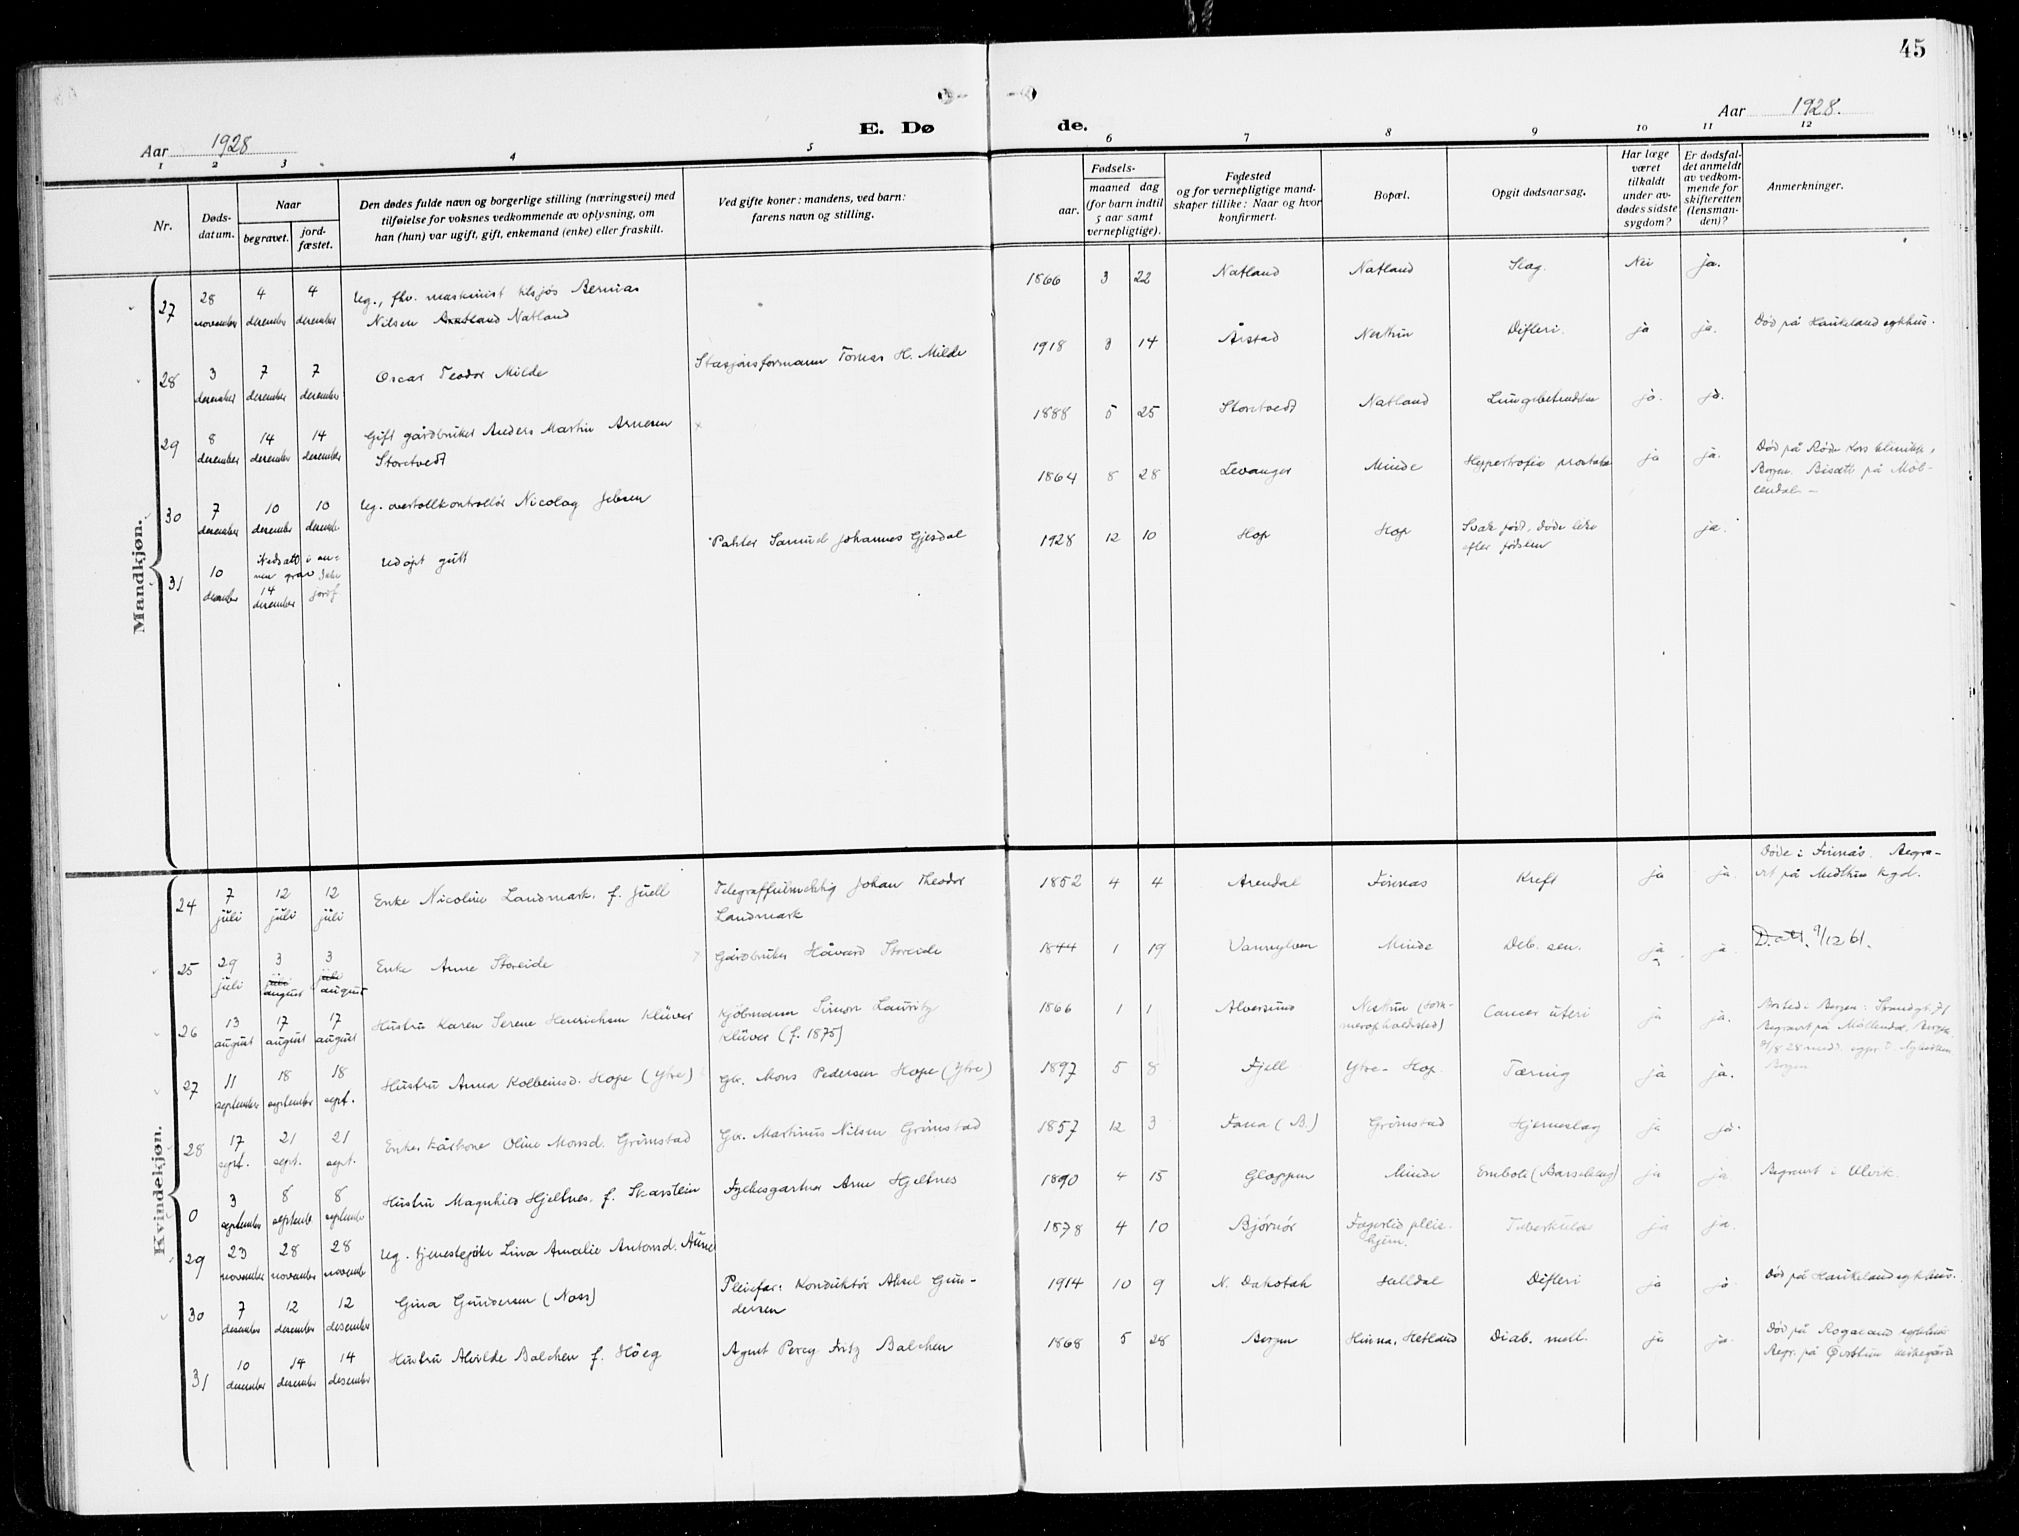 45
Aar 1928
E. Døde.
Aar 1928.
1 2 3 4 5 6 7 8 9 10 11 12
Nr.
Døds-
datum.
Naar
begravet.
jord-
fæstet.
Den dødes fulde navn og borgerlige stilling (næringsvei) med
tilføielse for voksnes vedkommende av oplysning, om
han (hun) var ugift, gift, enkemand (enke) eller fraskilt.
Ved gifte koner: mandens, ved barn:
farens navn og stilling.
Fødsels-
aar.
maaned dag
(for barn indtil
5 aar samt
vernepligtige).
Fødested
og for vernepligtige mand-
skaper tillike: Naar og hvor
konfirmert.
Bopæl.
Opgit dødsaarsag.
Har læge
været
tilkaldt
under av-
dødes sidste
sygdom?
Er dødsfal-
det anmeldt
av vedkom-
mende for
skifteretten
(lensman-
den)?
Anmerkninger.
Mandkjøn.
27 28 november 4 desember 4 desember Ug., fhv. maskinist tilsjøs Bernias
Nilsen Natland
1866 3 22 Natland Natland Slag. Nei ja.
28 3 desember 7 desember 7 desember Oscar Teodor Milde Stasjonsformann Tomas H. Milde 1918 3 14 Årstad Nesttun Difteri. ja ja. Død på Haukeland sykhus.
29 8 desember 14 desember 14 desember Gift gårdbruker Anders Martin Arnesen
Storetvedt
1888 5 25 Storetvedt Natland Lungebetendelse ja. ja.
30 7 desember 10 desember 10 desember Ug. overtollkontrollør Nicolay Jebsen 1864 8 28 Levanger Minde Hypertrofia prostata ja ja. Død på Røde Kors klinikk,
Bergen. Bisatt på Møl-
lendal.
31 10 desember Nedsatt i an-
nen grav 14 desember Ikke
jordf.
udøpt gutt Samuel Johannes Gjesdal 1928 12 10 Hop Hop Svak født, døde like
efter fødselen ja.
Kvindekjøn.
24 7 juli 12 juli 12 juli Enke Nicoline Landmark, f. Juell Telegraffullmektig Johan Theodor
Landmark
1852 4 4 Arendal Finnås Kreft ja ja. Døde i Finnås. Begra-
vet på Midthun kgd.
25 29 juli 3 juli august 3 juli august Enke Anne Storeide Gårdbruker Håvard Storeide 1844 1 19 Vannylven Minde Deb. sen. ja ja. D.att. 9/12 61.
26 13 august 17 august 17 august Hustru Karen Serene Henrichsen Klüver Kjøbmann Simon Lauritz
Klüver (f. 1875)
1866 1 1 Alversund Nesttun (som-
meropholdsted) Cancer uteri ja ja. Bosted i Bergen: Strandgt. 71
Begravet på Møllendal, Bergen
Bergen
27 11 september 18 september 18 sept. Hustru Anna Kolbeinsd. Hope (Ytre) Gbr. Mons Pedersen Hope (Ytre) 1897 5 8 Fjell Ytre-Hop. Tæring ja ja.
28 17 sept. 21 sept. 21 sept. Enke, kårkone Oline Monsd. Grimstad Gbr. Martinus Nilsen Grimstad 1857 12 3 Fana (B.) Grimstad Hjerneslag ja ja.
0 3 september 8 september 8 september Hustru Magnhild Hjeltnes, f. Skarstein Fylkesgartner Arne Hjeltnes 1890 4 15 Gloppen Minde Emboli (Barselseng) ja ja Begravet i Ulvik.
29 23 november 28 november 28 november Ug. tjenestepike Lina Amalie Antonsd. Aune 1878 4 10 Bjørnør Fagerlid pleie-
hjem. Tuberkulose ja ja.
30 7 desember 12 desember 12 desember Gina Gundersen (Noss) Pleiefar: Konduktør Aksel Gun-
dersen
1914 10 9 N. Dakotah Halldal Difteri ja ja Død på Haukeland sykhus.
31 10 desember 14 desember 14 desember Hustru Alvilde Balchen f. Höeg Agent Percy Fritz Balchen 1868 5 28 Bergen Hinna, Hetland Diab. mell. ja ja. Død på Rogaland sykehus
Begr. på Øvsttun kirkegård